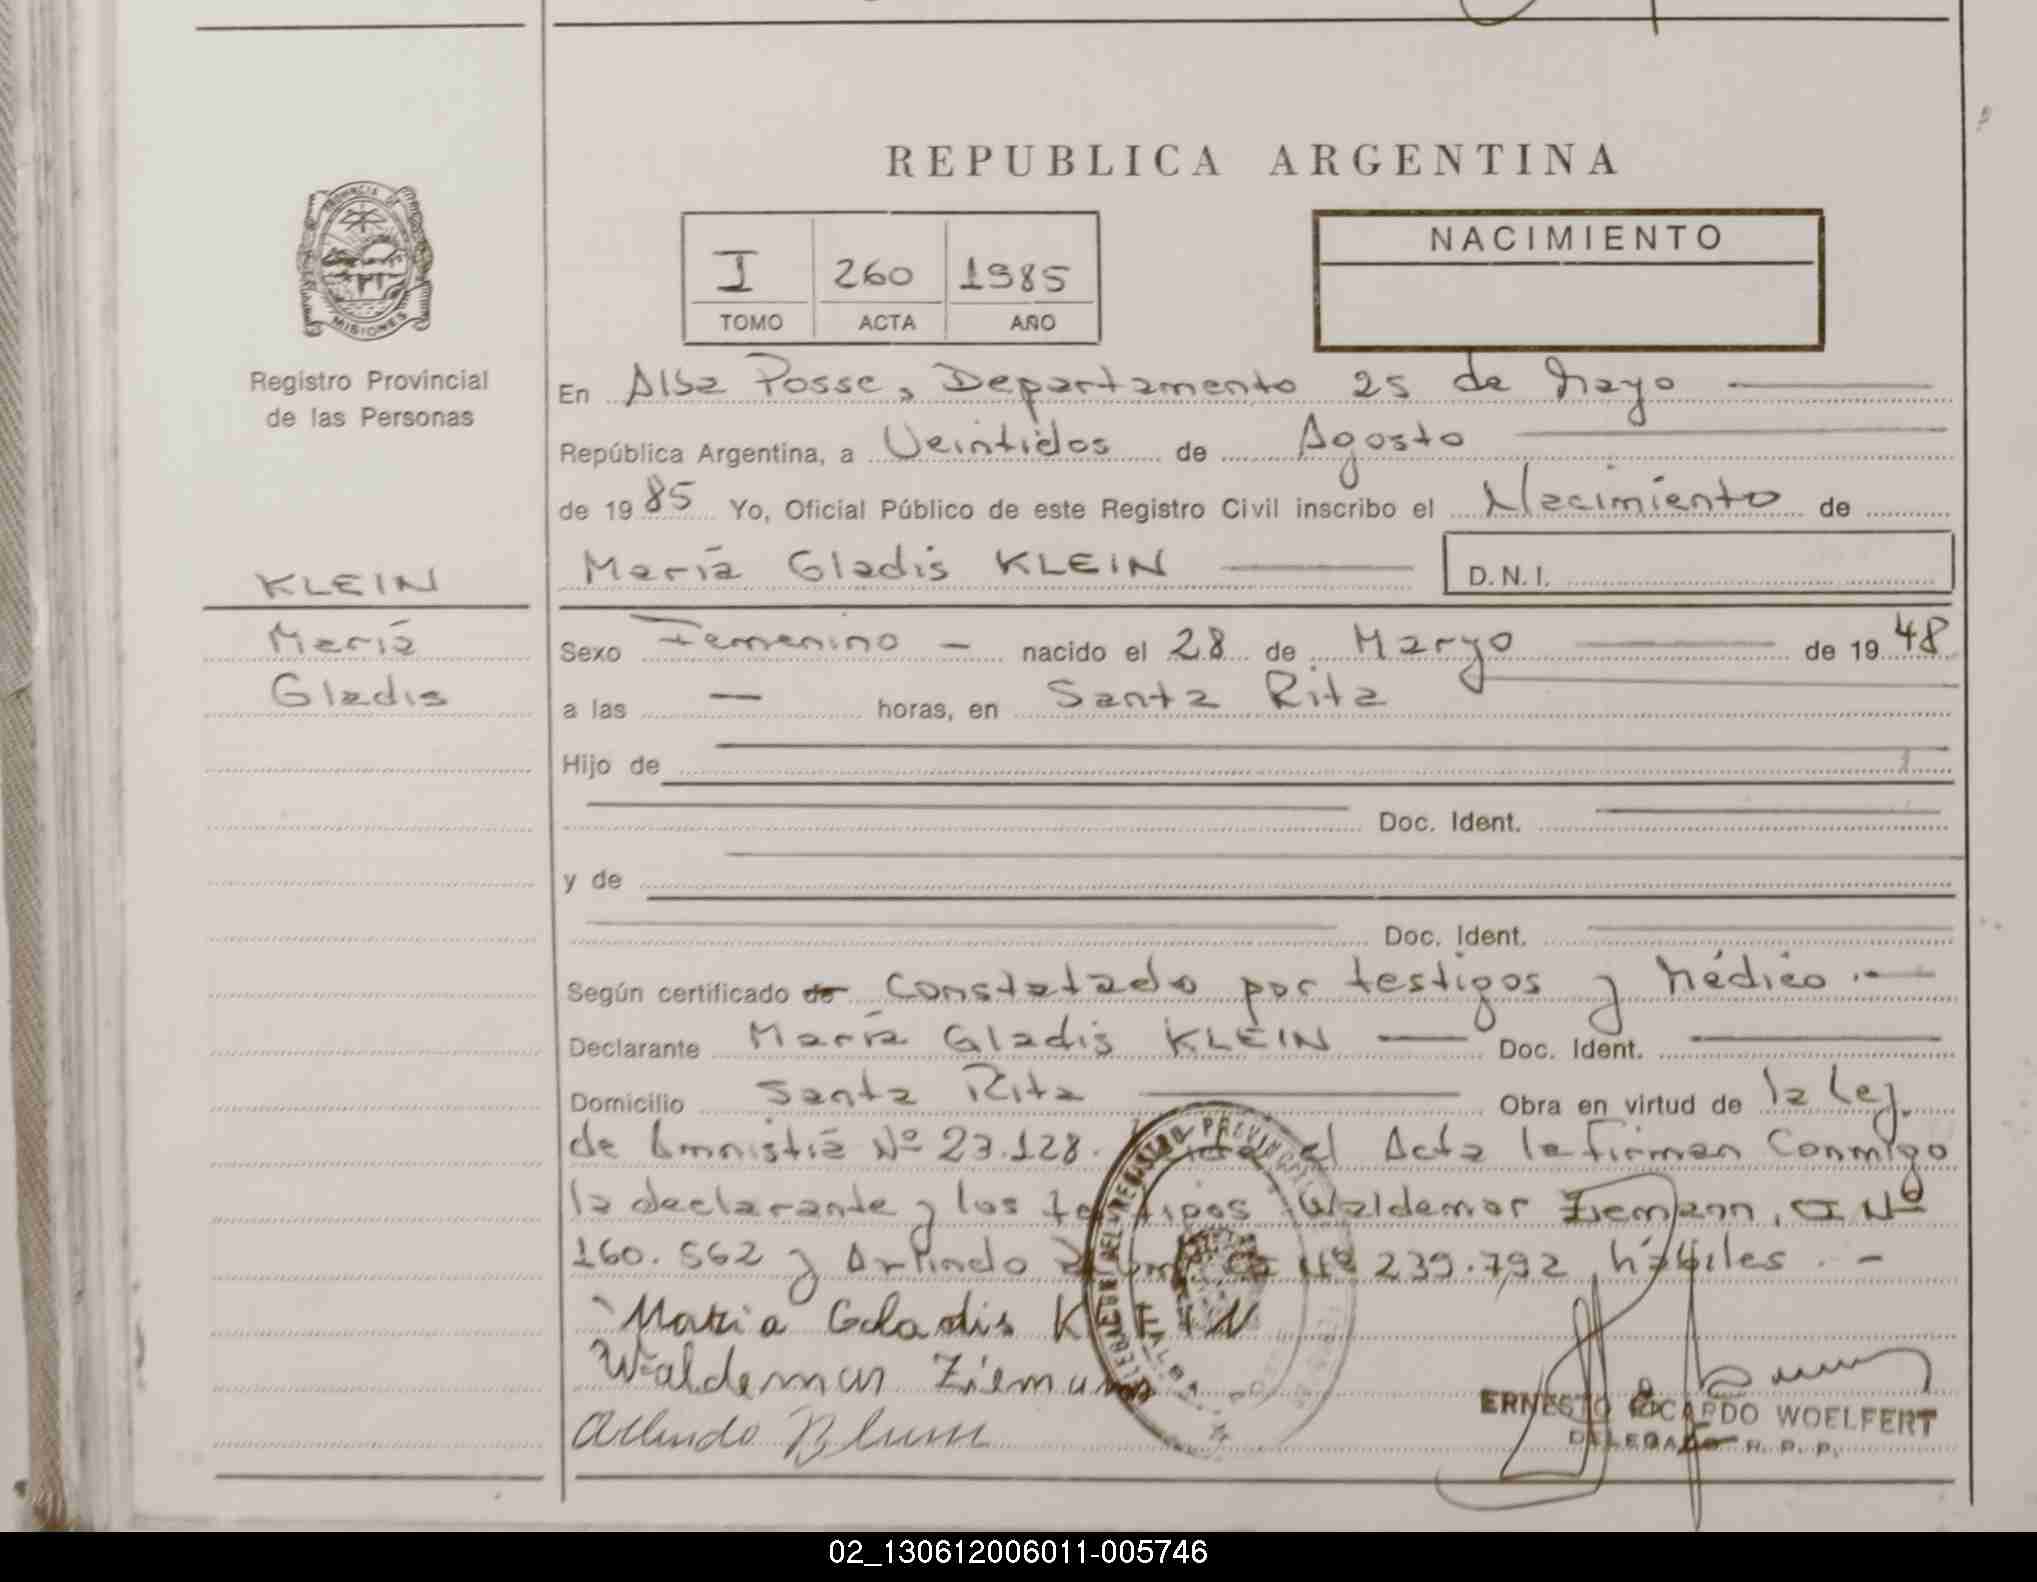 REPUBLICA ARGENTINA
PROVINCIA DE
MISIONES
Registro Provincial
de las Personas
I 260 1985
TOMO ACTA AÑO
NACIMIENTO
En Alba Posse, Departamento 25 de Mayo
República Argentina, a Veintidos de Agosto
de 1985 Yo, Oficial Público de este Registro Civil inscribo el Nacimiento de
María Gladis KLEIN D.N.I.
KLEIN
María
Gladis
Sexo Femenino - nacido el 28 de Maryo de 1948
a las — horas, en Santa Rita
Hijo de
Doc. Ident.
y de
Doc. Ident.
Según certificado de Constatado por testigos y Médico .-
Declarante María Gladis KLEIN Doc. Ident.
Domicilio Santa Rita Obra en virtud de la Ley.
de Amnistía Nº 23.128. el Acta la firman Conmigo
la declarante y los testigos Waldemar Ziemann, CI Nº
160.562 y Arlindo Blum CI Nº 239.792 hábiles . -
Maria Gladis KLEIN
Waldemar Ziemann
Arlindo Blum
ERNESTO RICARDO WOELFERT
DELEGADO R. P. P.
02_130612006011-005746